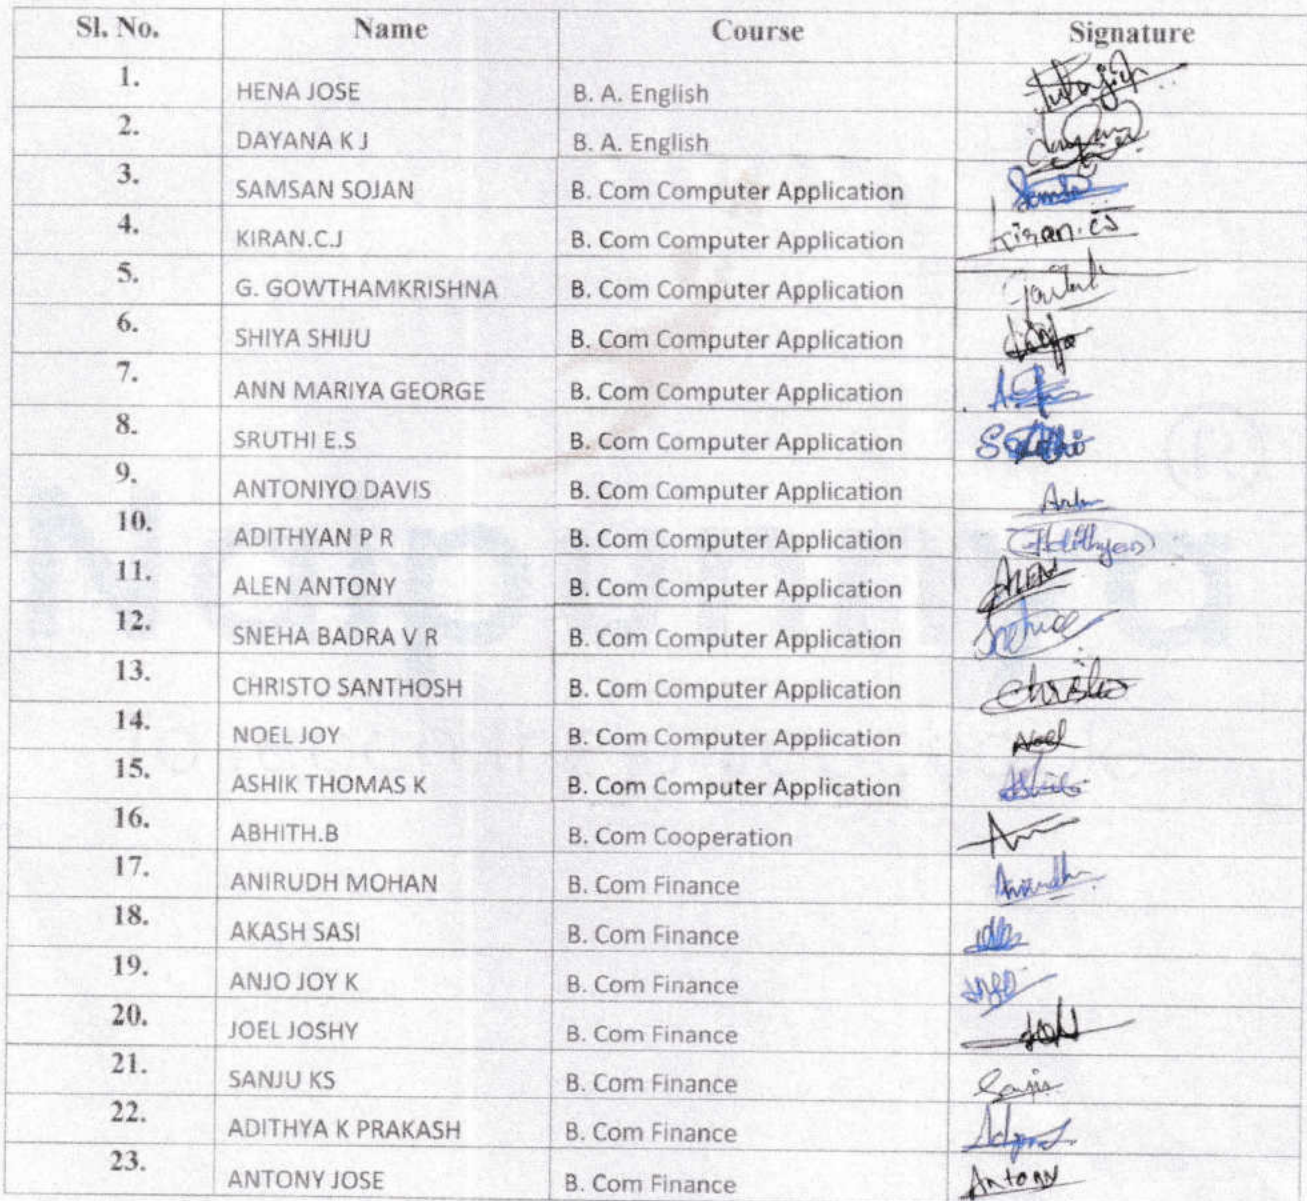 Sl. No. Name Course Signature
1. HENA JOSE B. A. English
2. DAYANA K J B. A. English
3. SAMSAN SOJAN B. Com Computer Application
4. KIRAN.C.J B. Com Computer Application Kiran.cj
5. G. GOWTHAMKRISHNA B. Com Computer Application
6. SHIYA SHIJU B. Com Computer Application
7. ANN MARIYA GEORGE B. Com Computer Application
8. SRUTHI E.S B. Com Computer Application
9. ANTONIYO DAVIS B. Com Computer Application
10. ADITHYAN P R B. Com Computer Application Adithyan
11. ALEN ANTONY B. Com Computer Application ALEN
12. SNEHA BADRA V R B. Com Computer Application
13. CHRISTO SANTHOSH B. Com Computer Application Christo
14. NOEL JOY B. Com Computer Application Noel
15. ASHIK THOMAS K B. Com Computer Application
16. ABHITH.B B. Com Cooperation
17. ANIRUDH MOHAN B. Com Finance Anirudh
18. AKASH SASI B. Com Finance
19. ANJO JOY K B. Com Finance
20. JOEL JOSHY B. Com Finance
21. SANJU KS B. Com Finance
22. ADITHYA K PRAKASH B. Com Finance
23. ANTONY JOSE B. Com Finance Antony